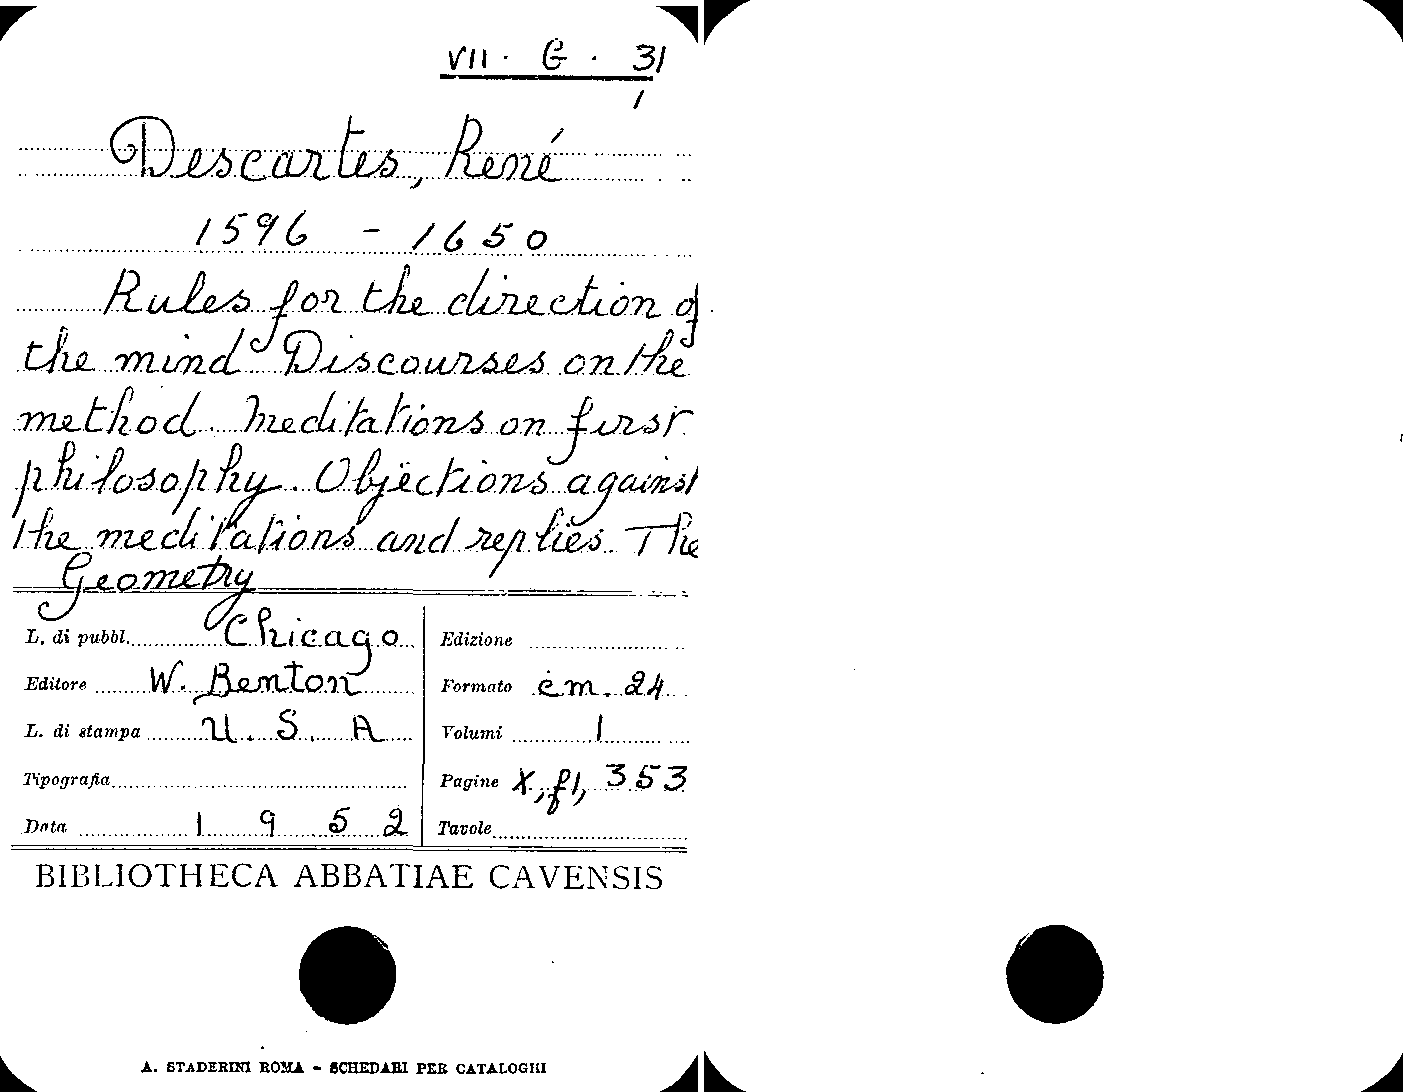 VII · G · 31
1
Descartes, René
1596 - 1650
Rules for the direction of
the mind Discourses on the
method. Meditations on first
philosophy. Objections against
the meditations and replies. The
Geometry
L. di pubbl. Chicago
Edizione
Editore W. Benton
Formato cm. 24
L. di stampa U. S. A
Volumi 1
Tipografia
Pagine X, fl, 353
Data 1952
Tavole
BIBLIOTHECA ABBATIAE CAVENSIS
A. STADERINI ROMA - SCHEDARI PER CATALOGHI